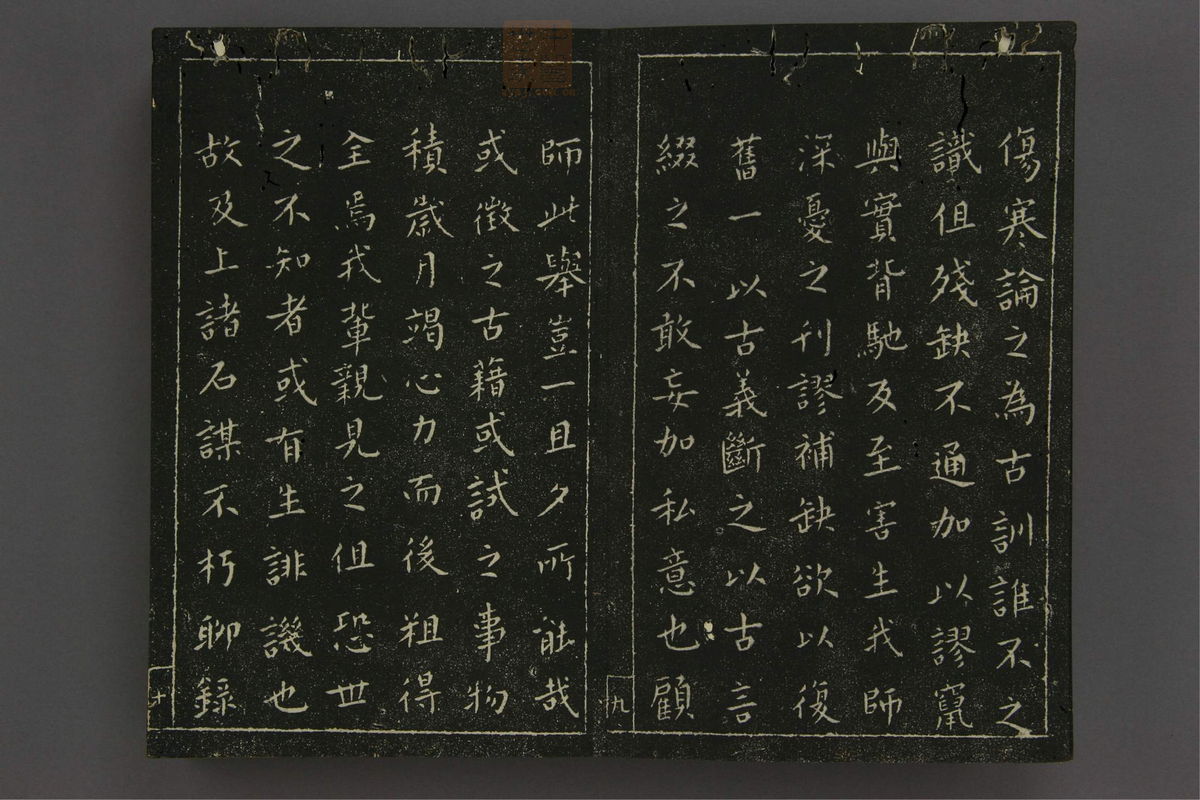 傷寒論之為古訓誰不之
識伹殘缺不通加以謬竄
與實背馳及至害生我師
深憂之刋謬補缺欲以復
舊一以古義斷之以古言
綴之不敢妄加私意也顧
九
師此舉豈一旦夕所能哉
或徵之古藉或試之事物
積歲月竭心力而後粗得
全焉我輩親見之伹恐世
之不知者或有生誹譏也
故及上諸石謀不朽聊錄
十